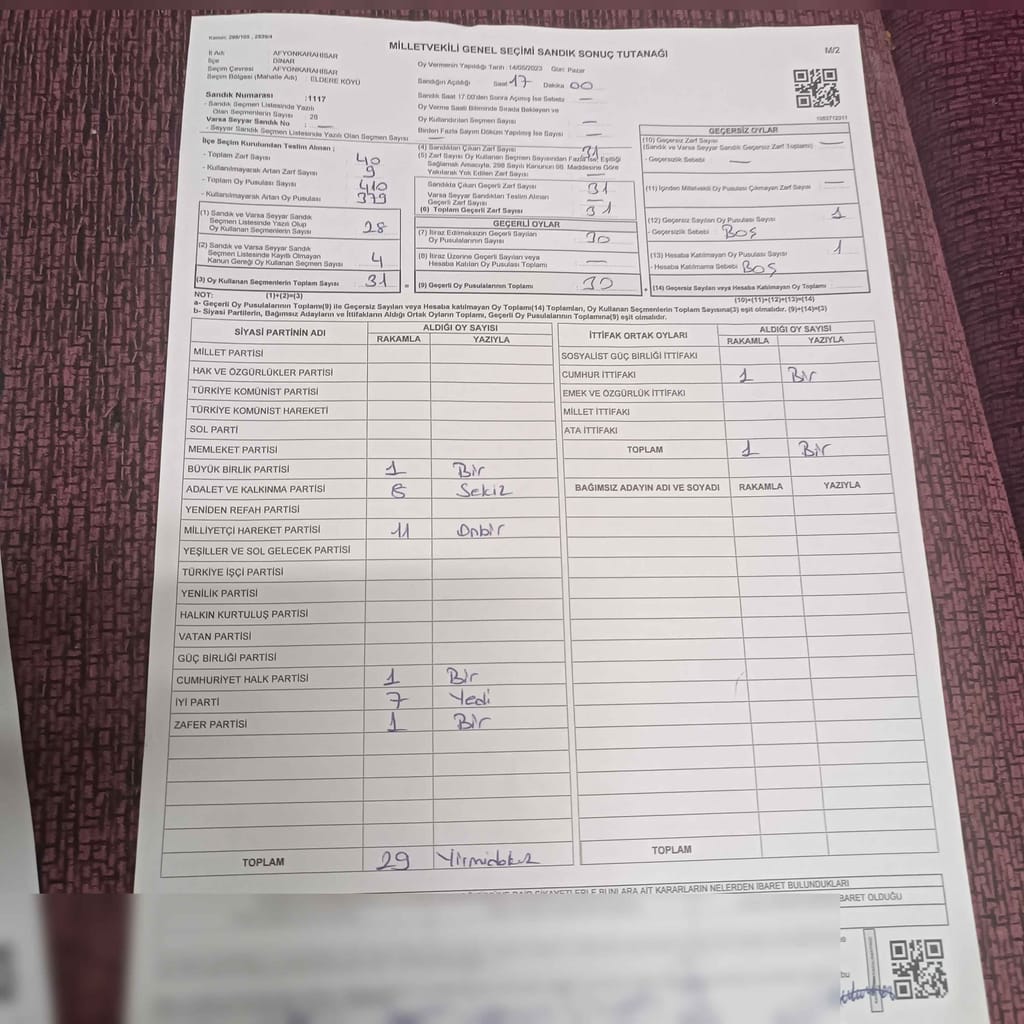 Kanun: 298/105 , 2839/4
MİLLETVEKİLİ GENEL SEÇİMİ SANDIK SONUÇ TUTANAĞI
M/2
İl Adı : AFYONKARAHİSAR
İlçe : DİNAR
Seçim Çevresi : AFYONKARAHİSAR
Seçim Bölgesi (Mahalle Adı) : ELDERE KÖYÜ
Sandık Numarası :1117
- Sandık Seçmen Listesinde Yazılı
Olan Seçmenlerin Sayısı
Varsa Seyyar Sandık No : —
- Seyyar Sandık Seçmen Listesinde Yazılı Olan Seçmen Sayısı —
Oy Vermenin Yapıldığı Tarih :14/05/2023 Gün: Pazar
Sandığın Açıldığı Saat 17 Dakika 00
Sandık Saat 17.00'den Sonra Açılmış İse Sebebi —
Oy Verme Saati Bitiminde Sırada Bekleyen ve
Oy Kullandırılan Seçmen Sayısı —
Birden Fazla Sayım Döküm Yapılmış İse Sayısı —
İlçe Seçim Kurulundan Teslim Alınan ;
- Toplam Zarf Sayısı 40
- Kullanılmayarak Artan Zarf Sayısı 9
- Toplam Oy Pusulası Sayısı 410
- Kullanılmayarak Artan Oy Pusulası 379
(1) Sandık ve Varsa Seyyar Sandık
Seçmen Listesinde Yazılı Olup
Oy Kullanan Seçmenlerin Sayısı 28
(2) Sandık ve Varsa Seyyar Sandık
Seçmen Listesinde Kayıtlı Olmayan
Kanun Gereği Oy Kullanan Seçmen Sayısı 4
(3) Oy Kullanan Seçmenlerin Toplam Sayısı 31
(1)+(2)=(3)
(4) Sandıktan Çıkan Zarf Sayısı 31
(5) Zarf Sayısı Oy Kullanan Seçmen Sayısından Fazla İse, Eşitliği
Sağlamak Amacıyla, 298 Sayılı Kanunun 98. Maddesine Göre
Yakılarak Yok Edilen Zarf Sayısı —
Sandıkta Çıkan Geçerli Zarf Sayısı 31
Varsa Seyyar Sandıktan Teslim Alınan
Geçerli Zarf Sayısı —
(6) Toplam Geçerli Zarf Sayısı 31
GEÇERLİ OYLAR
(7) İtiraz Edilmeksizin Geçerli Sayılan
Oy Pusulalarının Sayısı 30
(8) İtiraz Üzerine Geçerli Sayılan veya
Hesaba Katılan Oy Pusulası Toplamı —
(9) Geçerli Oy Pusulalarının Toplamı : 30
GEÇERSİZ OYLAR
(10) Geçersiz Zarf Sayısı
(Sandık ve Varsa Seyyar Sandık Geçersiz Zarf Toplamı) —
- Geçersizlik Sebebi —
(11) İçinden Milletvekili Oy Pusulası Çıkmayan Zarf Sayısı —
(12) Geçersiz Sayılan Oy Pusulası Sayısı 1
- Geçersizlik Sebebi BOŞ
(13) Hesaba Katılmayan Oy Pusulası Sayısı 1
- Hesaba Katılmama Sebebi BOŞ
(14) Geçersiz Sayılan veya Hesaba Katılmayan Oy Toplamı
(10)+(11)+(12)+(13)=(14)
NOT:
a- Geçerli Oy Pusulalarının Toplamı(9) ile Geçersiz Sayılan veya Hesaba katılmayan Oy Toplamı(14) Toplamları, Oy Kullanan Seçmenlerin Toplam Sayısına(3) eşit olmalıdır. (9)+(14)=(3)
b- Siyasi Partilerin, Bağımsız Adayların ve İttifakların Aldığı Ortak Oyların Toplamı, Geçerli Oy Pusulalarının Toplamına(9) eşit olmalıdır.
SİYASİ PARTİNİN ADI
ALDIĞI OY SAYISI
RAKAMLA YAZIYLA
MİLLET PARTİSİ
HAK VE ÖZGÜRLÜKLER PARTİSİ
TÜRKİYE KOMÜNİST PARTİSİ
TÜRKİYE KOMÜNİST HAREKETİ
SOL PARTİ
MEMLEKET PARTİSİ
BÜYÜK BİRLİK PARTİSİ 1 Bir
ADALET VE KALKINMA PARTİSİ 8 Sekiz
YENİDEN REFAH PARTİSİ
MİLLİYETÇİ HAREKET PARTİSİ 11 Onbir
YEŞİLLER VE SOL GELECEK PARTİSİ
TÜRKİYE İŞÇİ PARTİSİ
YENİLİK PARTİSİ
HALKIN KURTULUŞ PARTİSİ
VATAN PARTİSİ
GÜÇ BİRLİĞİ PARTİSİ
CUMHURİYET HALK PARTİSİ 1 Bir
İYİ PARTİ 7 Yedi
ZAFER PARTİSİ 1 Bir
TOPLAM 29 Yirmidokuz
İTTİFAK ORTAK OYLARI
ALDIĞI OY SAYISI
RAKAMLA YAZIYLA
SOSYALİST GÜÇ BİRLİĞİ İTTİFAKI
CUMHUR İTTİFAKI 1 Bir
EMEK VE ÖZGÜRLÜK İTTİFAKI
MİLLET İTTİFAKI
ATA İTTİFAKI
TOPLAM 1 Bir
BAĞIMSIZ ADAYIN ADI VE SOYADI RAKAMLA YAZIYLA
TOPLAM
ŞİKAYETLERLE BUNLARA AİT KARARLARIN NELERDEN İBARET BULUNDUKLARI
BARET OLDUĞU